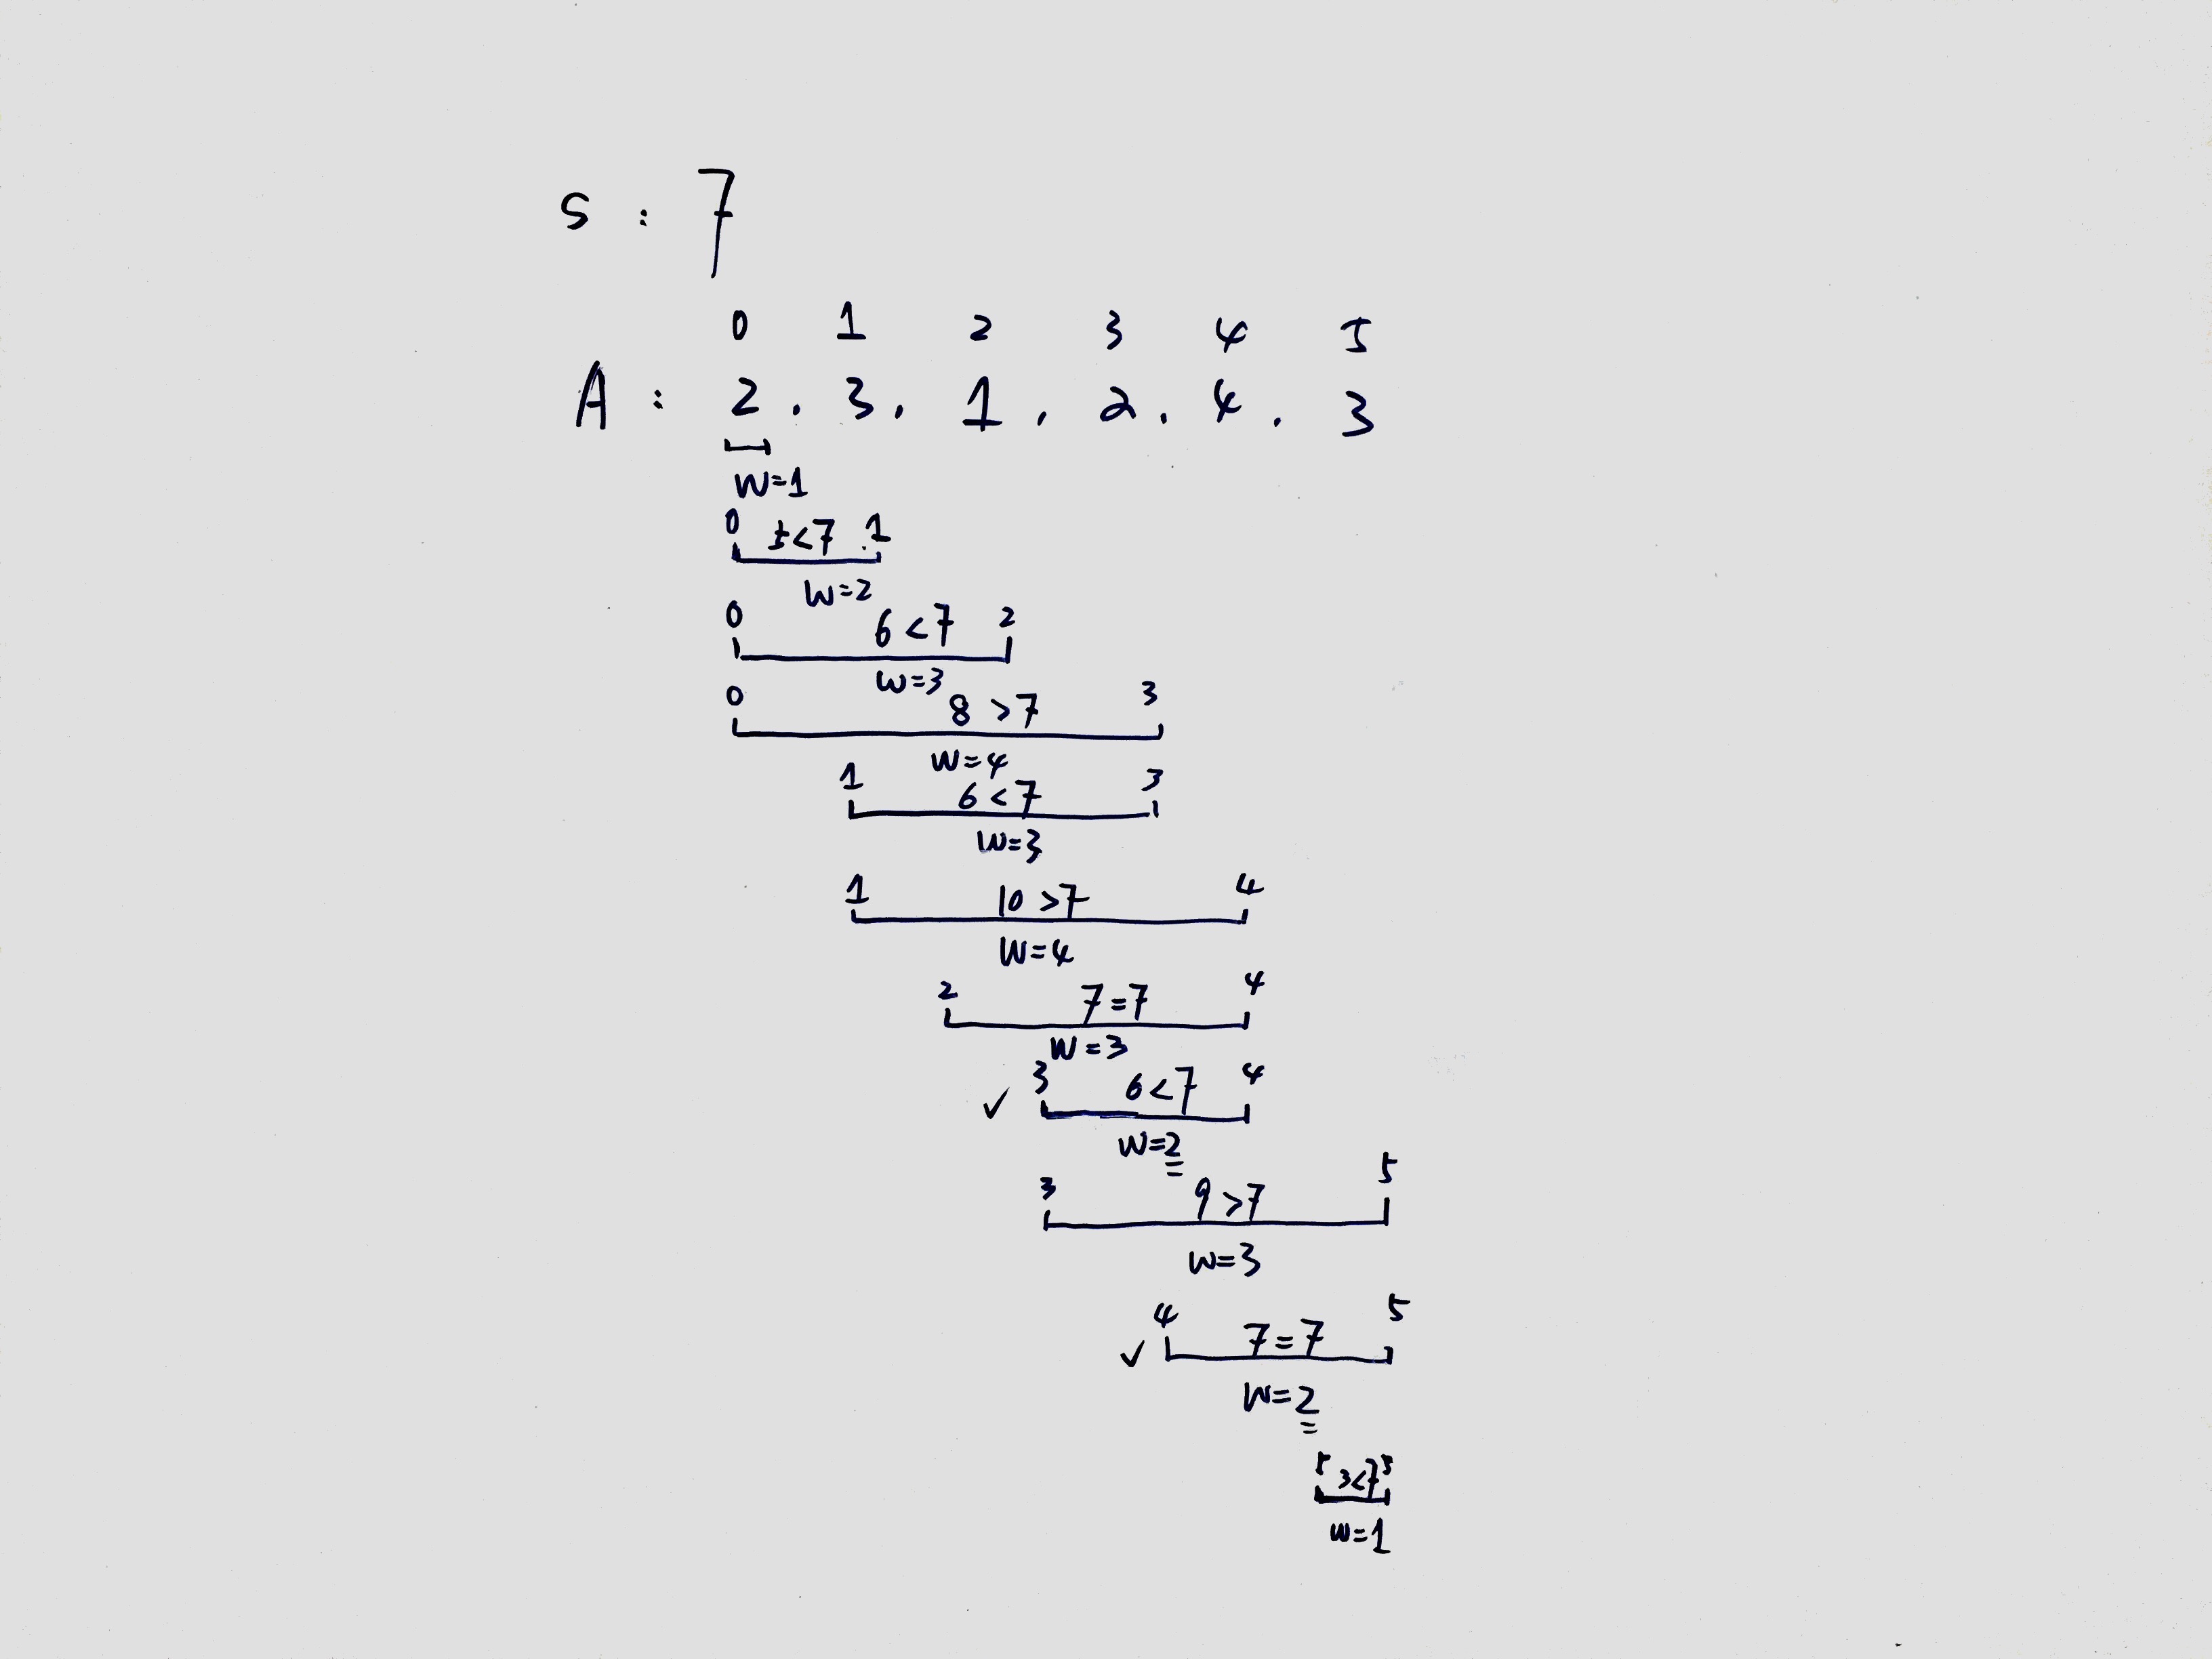 S : 7
0 1 2 3 4 5
A : 2 . 3 . 1 . 2 . 4 . 3
W=1
0 5<7 1
W=2
0 6<7 2
W=3
0 8>7 3
W=4
1 6<7 3
W=3
1 10>7 4
W=4
2 7=7 4
W=3
✓ 3 6<7 4
W=2
3 9>7 5
W=3
✓ 4 7=7 5
W=2
5 3<7 5
W=1